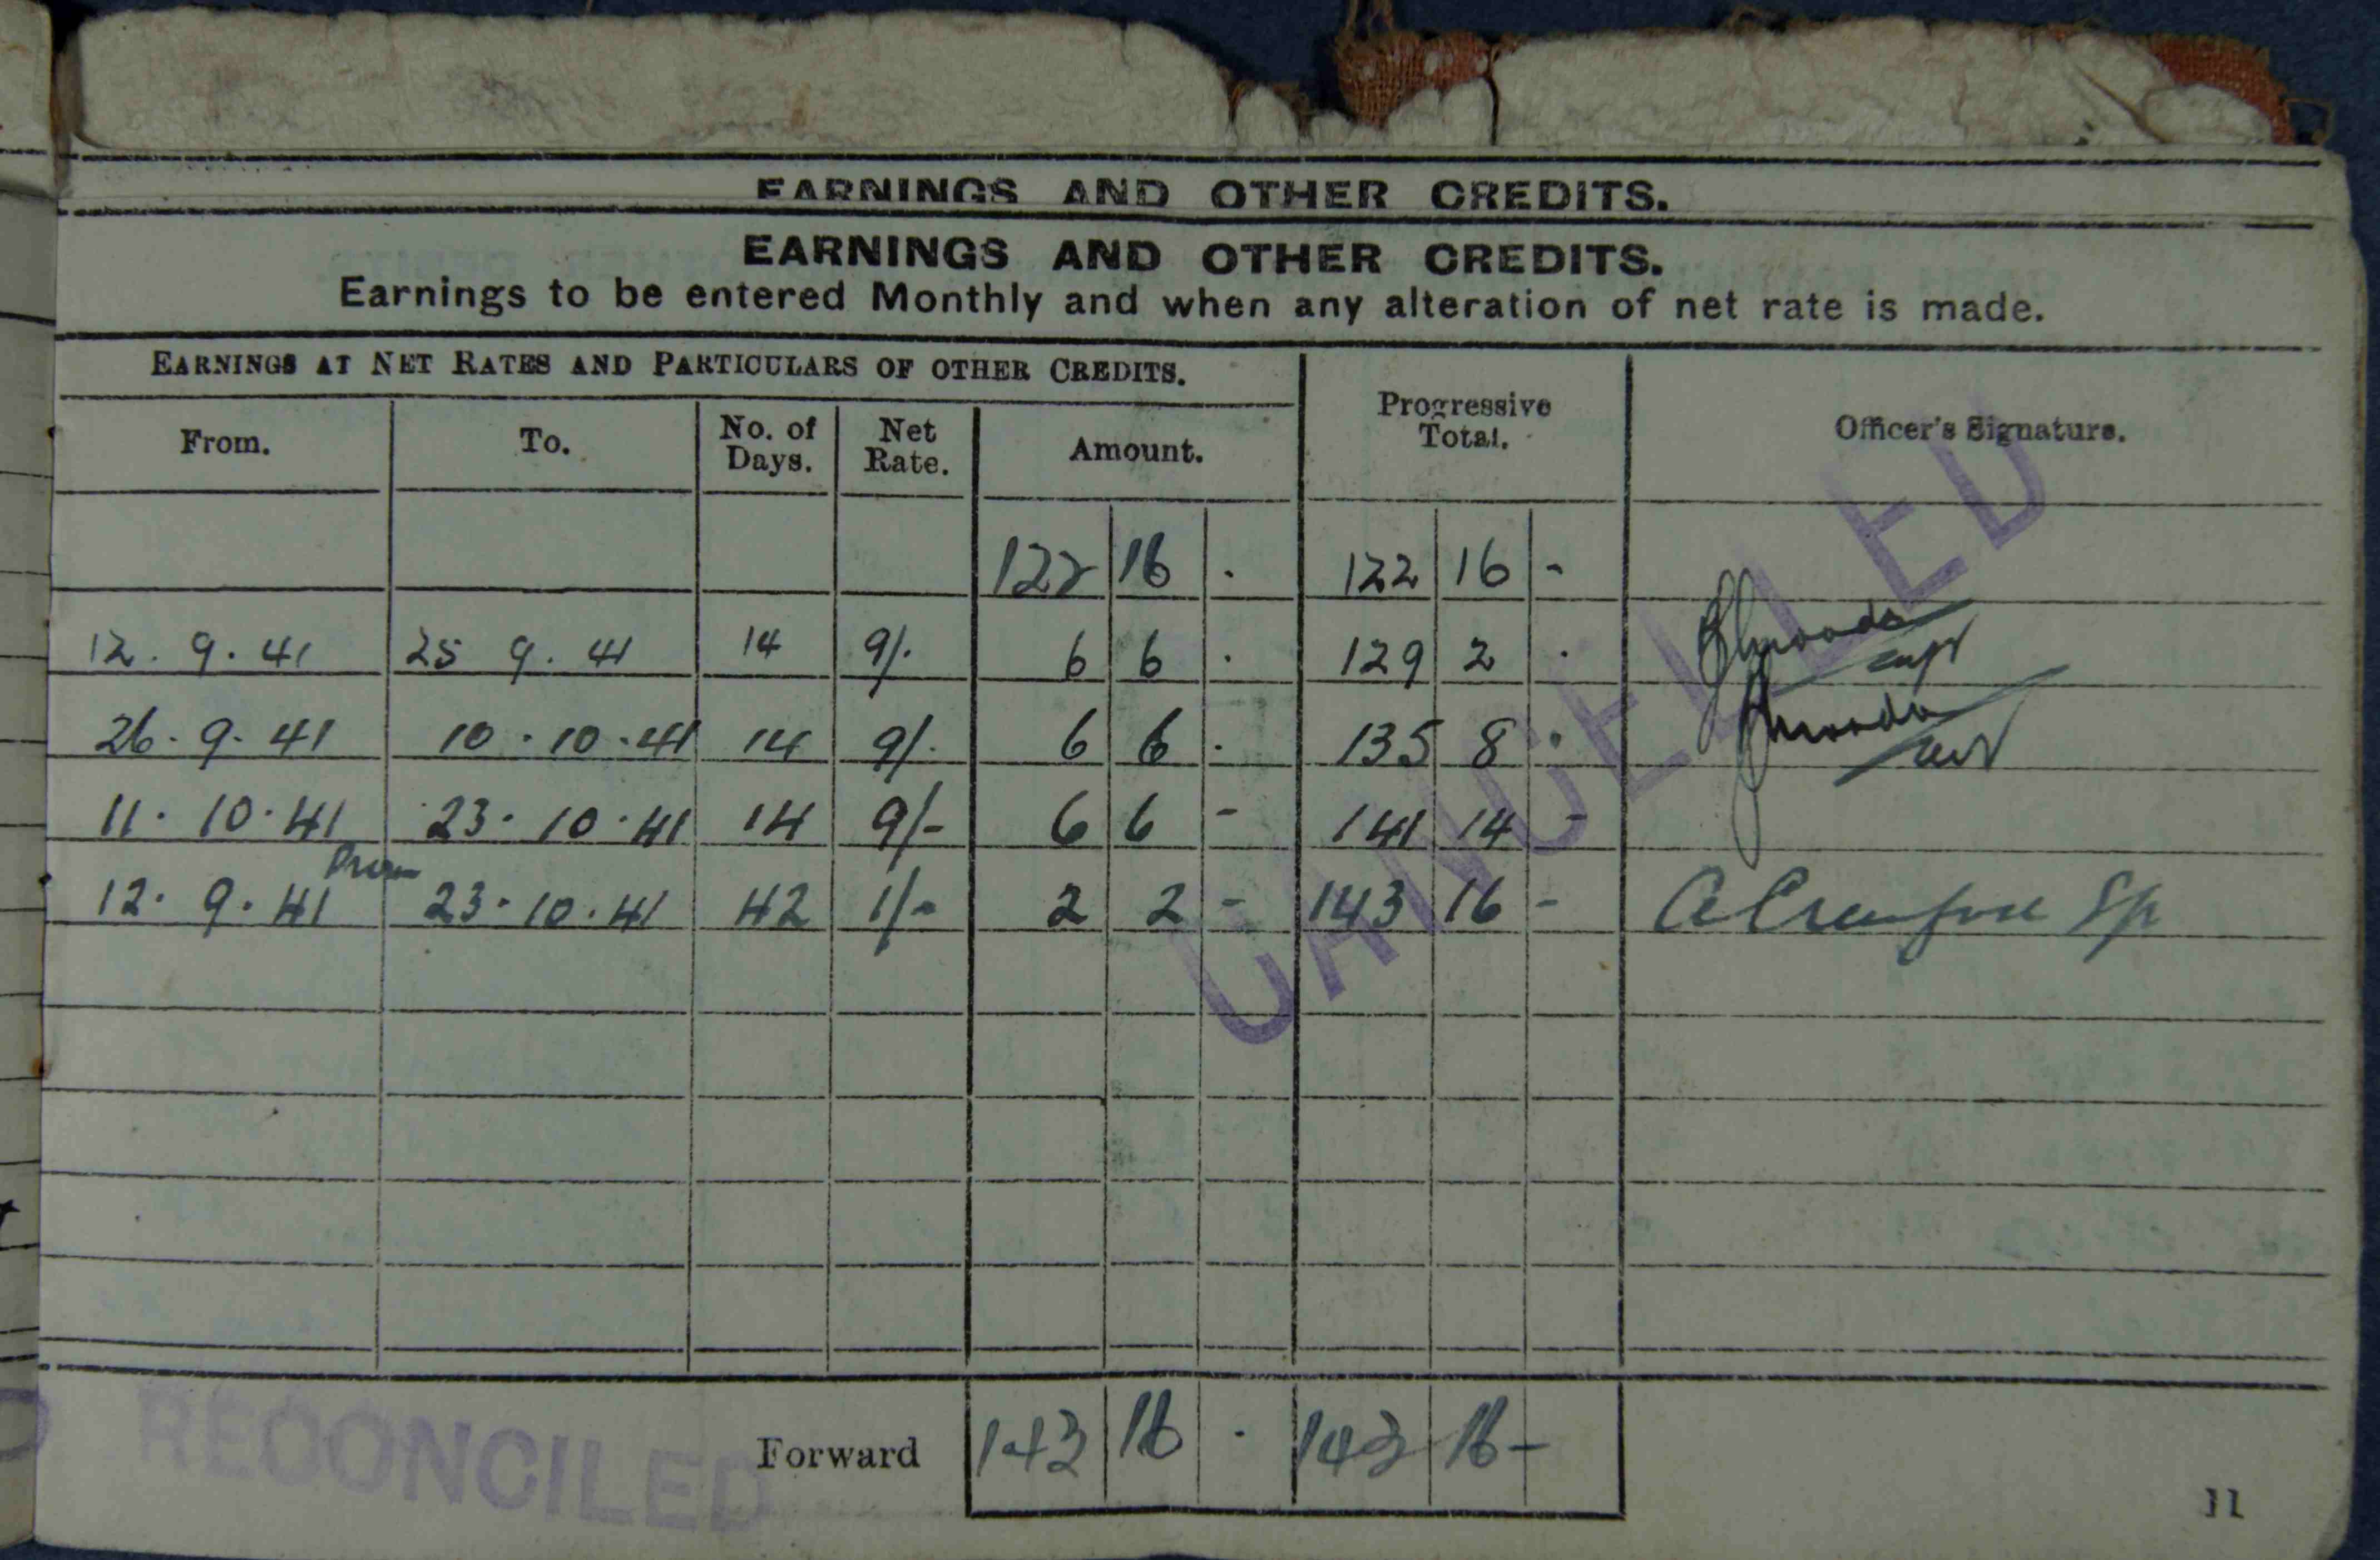 EARNINGS AND OTHER CREDITS.
EARNINGS AND OTHER CREDITS.
Earnings to be entered Monthly and when any alteration of net rate is made.
EARNINGS AT NET RATES AND PARTICULARS OF OTHER CREDITS.
From. To. No. of Days. Net Rate. Amount. Progressive Total. Officer's Signature.
122 16 . 122 16 -
12. 9. 41 25 9. 41 14 9/. 6 6 . 129 2 .
26. 9. 41 10. 10. 41 14 9/. 6 6 . 135 8 .
11. 10. 41 23. 10. 41 14 9/- 6 6 - 141 14 -
12. 9. 41 23. 10. 41 42 1/- 2 2 - 143 16 -
CANCELLED
Forward 143 16 . 143 16 -
RECONCILED
11